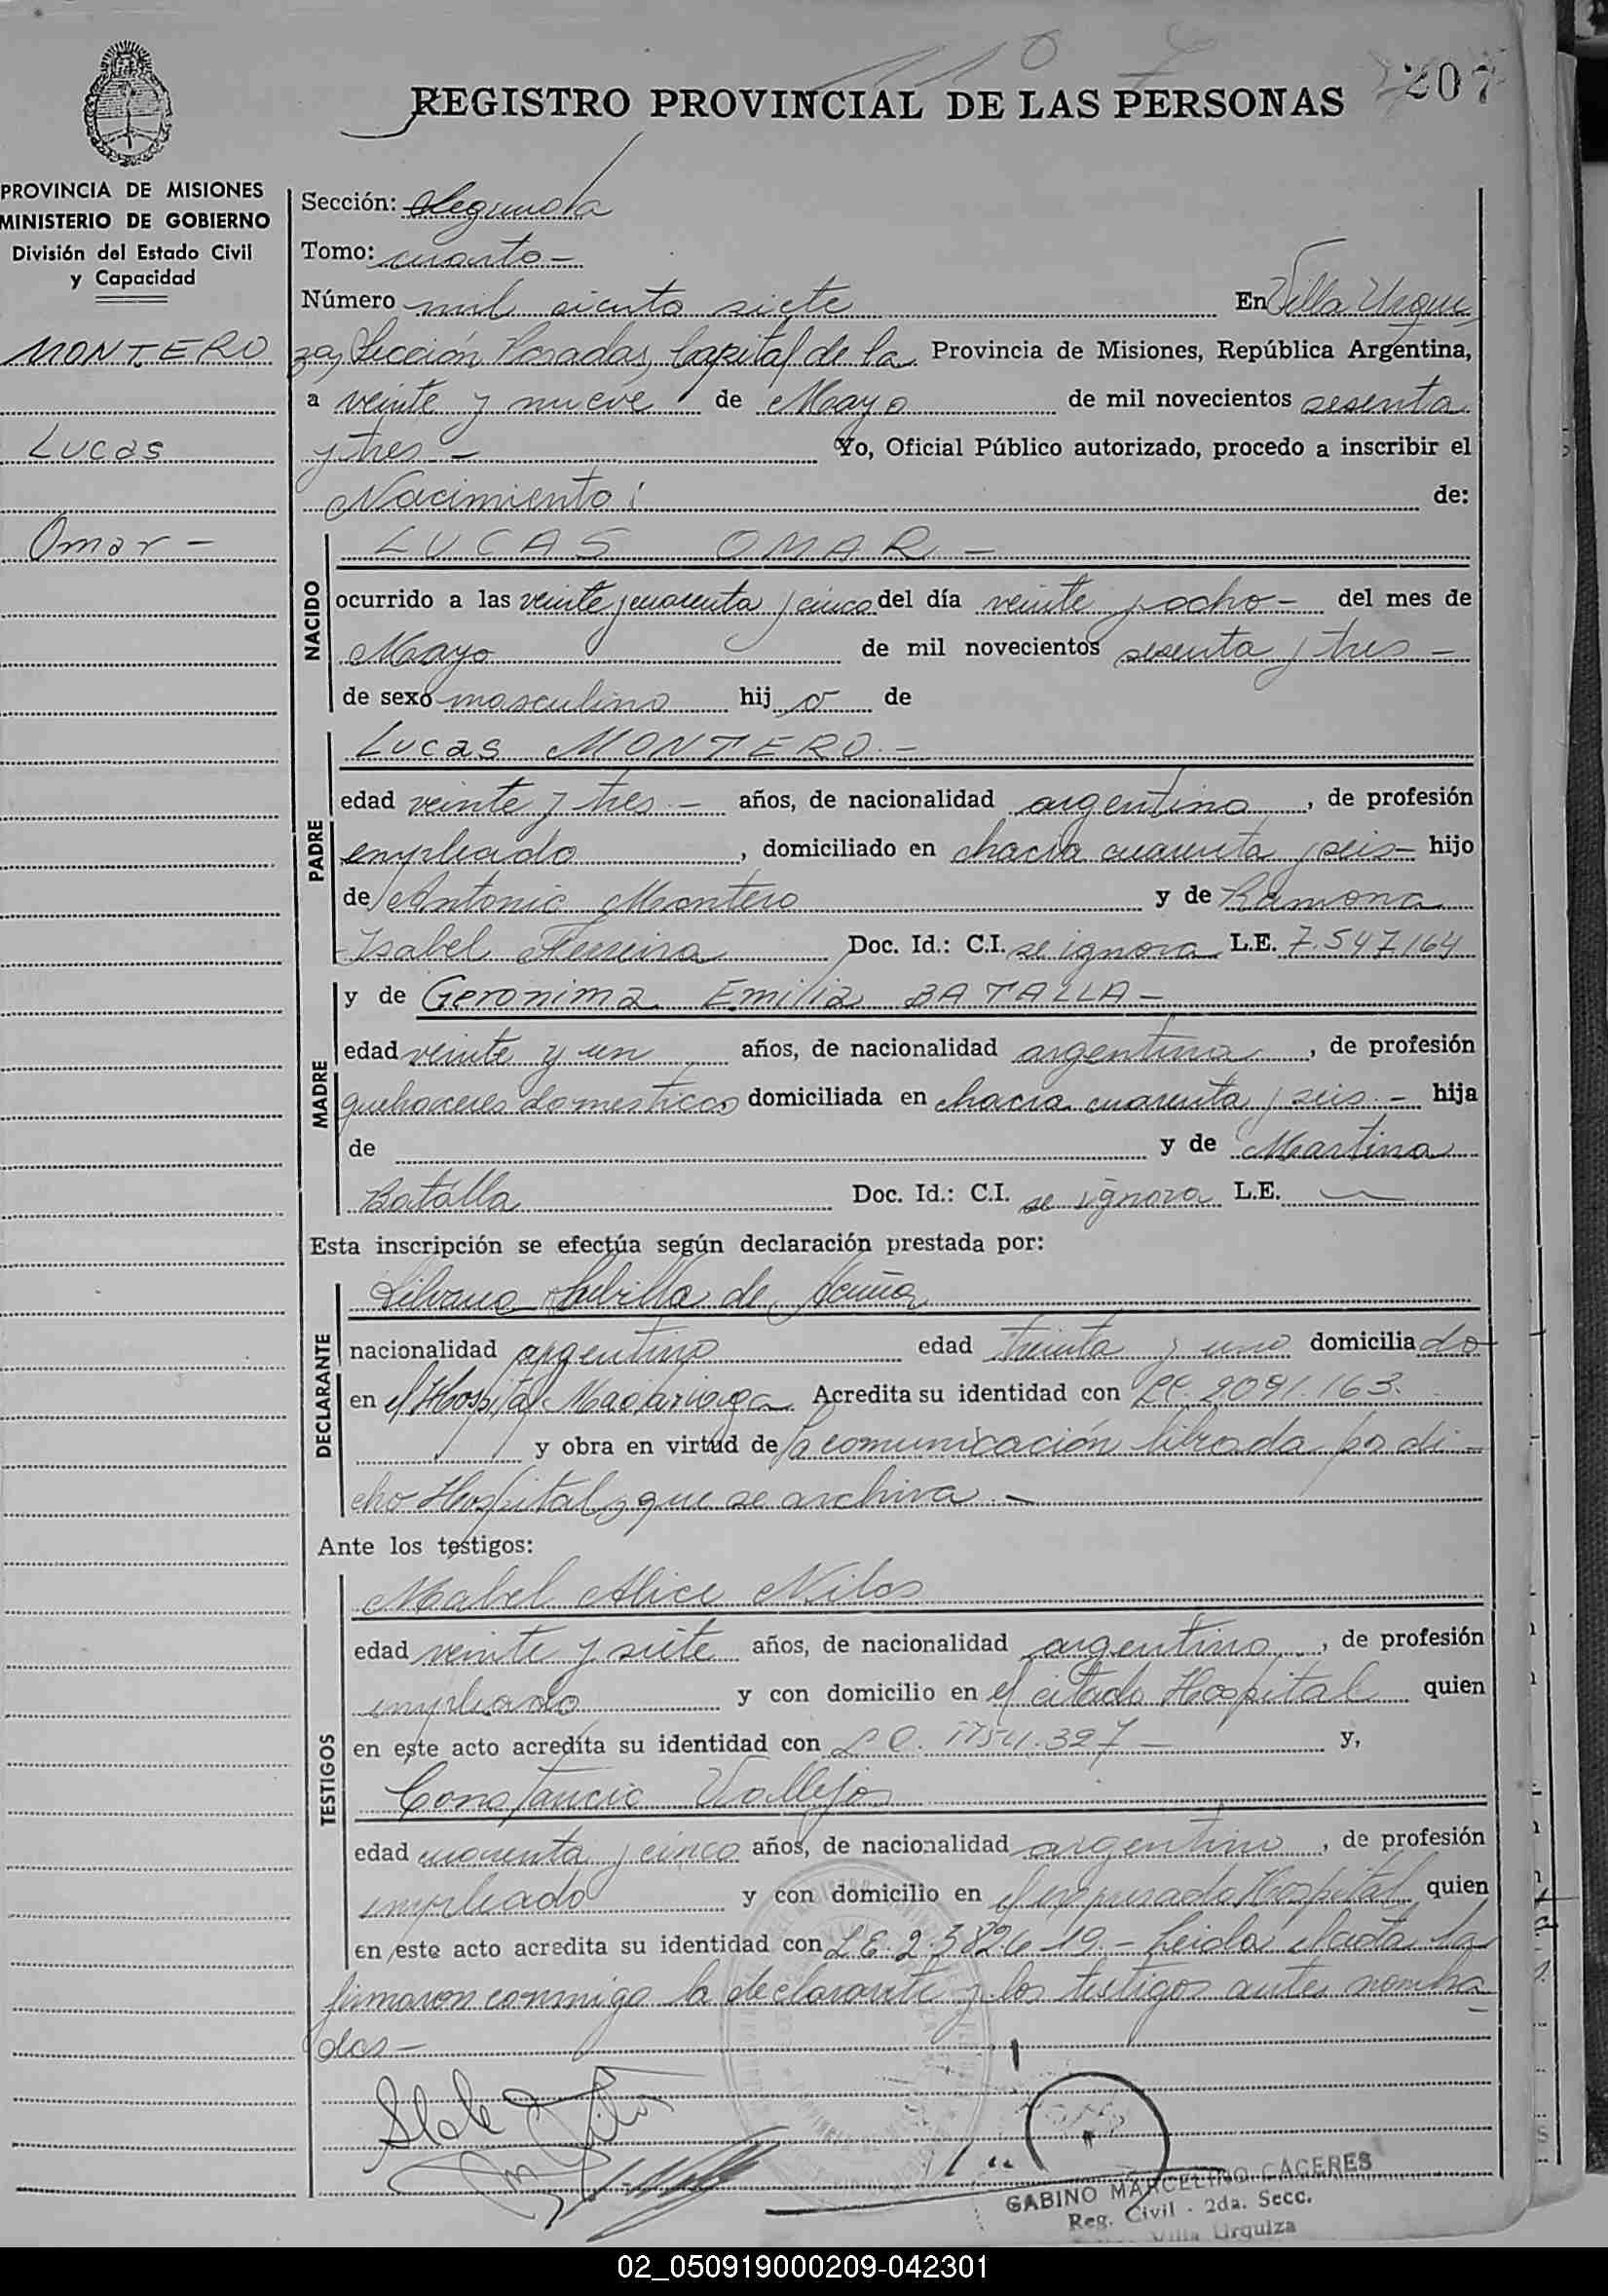 207
REGISTRO PROVINCIAL DE LAS PERSONAS
PROVINCIA DE MISIONES
MINISTERIO DE GOBIERNO
División del Estado Civil
y Capacidad
MONTERO
Lucas
Omar -
Sección: Segunda
Tomo: cuarto -
Número mil ciento siete En Villa Urqui
za, Sección Posadas, Capital de la Provincia de Misiones, República Argentina,
a veinte y nueve de Mayo de mil novecientos sesenta
y tres - Yo, Oficial Público autorizado, procedo a inscribir el
Nacimiento: de:
NACIDO
LUCAS OMAR -
ocurrido a las veinte y cuarenta y cinco del día veinte y ocho - del mes de
Mayo de mil novecientos sesenta y tres -
de sexo masculino hij o de
PADRE
Lucas MONTERO. -
edad veinte y tres. - años, de nacionalidad argentino, de profesión
empleado, domiciliado en chacra cuarenta y seis - hijo
de Antonio Montero y de Ramona
Isabel Ferreira Doc. Id.: C.I. se ignora L.E. 7.547.164
MADRE
y de Geronima Emilia BATALLA -
edad veinte y un años, de nacionalidad argentina, de profesión
quehaceres domesticos domiciliada en chacra cuarenta y seis. - hija
de y de Martina
Batalla Doc. Id.: C.I. se ignora L.E.
Esta inscripción se efectúa según declaración prestada por:
DECLARANTE
de Acuña
nacionalidad argentino edad treinta y uno domicilia do
en el Hospital Madariaga Acredita su identidad con LC. 2091.163.
y obra en virtud de la comunicación librada po di -
cho Hospital y que se archiva. -
Ante los testigos:
TESTIGOS
Mabel Alice Nilos
edad veinte y siete años, de nacionalidad argentino, de profesión
empleado y con domicilio en el citado Hospital quien
en este acto acredita su identidad con L C. - y,
Constancio Vallejos
edad cuarenta y cinco años, de nacionalidad argentino, de profesión
empleado y con domicilio en el expresado Hospital quien
en este acto acredita su identidad con L E. - Leida el acta la
firmaron conmigo la declarante y los testigos antes nombra
dos -
GABINO MARCELINO CACERES
Reg. Civil - 2da. Secc.
Villa Urquiza
02_050919000209-042301